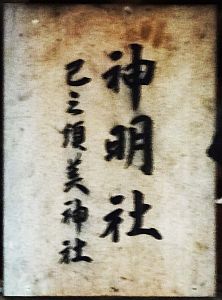 神明社
己之須美神社